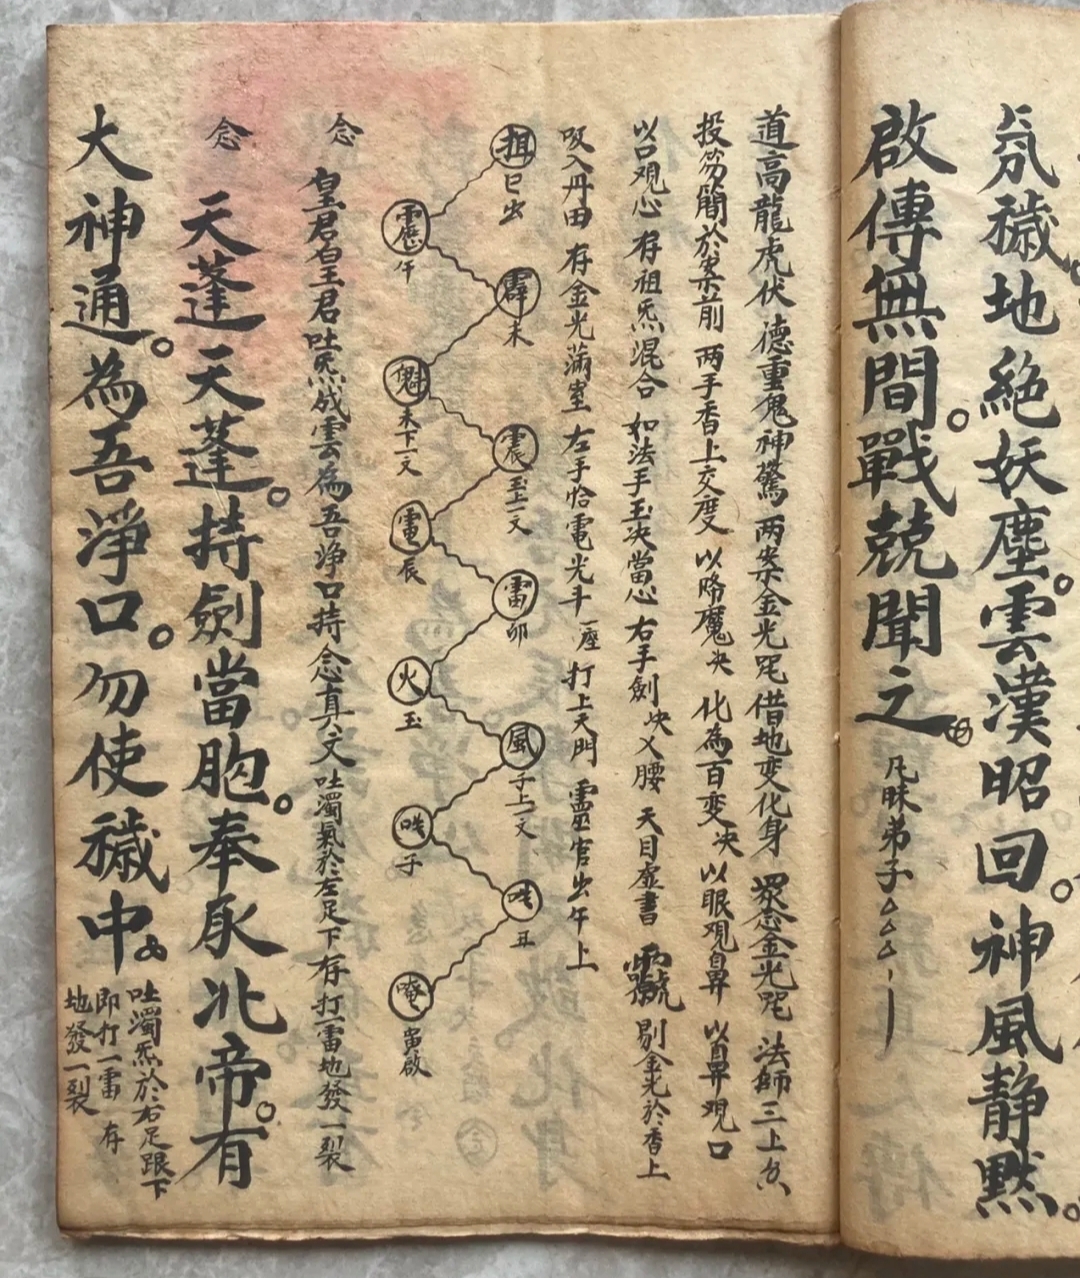 氛穢地絶妖塵。雲漢昭回。神風静黙。
啟傳無間。戰兢聞之。凡昧弟子△△△
道高龍虎伏 德重鬼神驚 两案金光咒 借地变化身 眾念金光咒 法師三上
投笏簡於案前 两手香上交度 以降魔决 化為百变决 以眼观鼻 以鼻观口
以口观心 存祖炁混合 如法手玉决當心 右手劍决乂腰 天目虚書 剔金光於香上
吸入丹田 存金光满室 左手恰電光斗 一座 打上天門 靈官出午上
巳出
霹 未
震 玉上一文
雷 卯
風 子上一文
丑
午
魁 未下一文
電 辰
火 玉
子
唵 寅啟
念 皇君白王君吐炁成雲為吾净口持 念真文 吐濁氣於左足下存打一雷地發一裂
念 天蓬天蓬。持劍當胸。奉承北帝。有
大神通。為吾淨口。勿使穢中。
吐濁炁於右足跟下
即打一雷 存
地發一裂